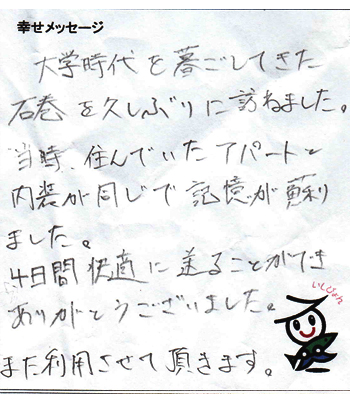 幸せメッセージ
大学時代を暮ごしてきた
石巻を久しぶりに訪ねました。
当時、住んでいたアパートと
内装が同じで記憶が蘇り
ました。
4日間快適に送ることができ
ありがとうございました。
また利用させて頂きます。
いしぴょん